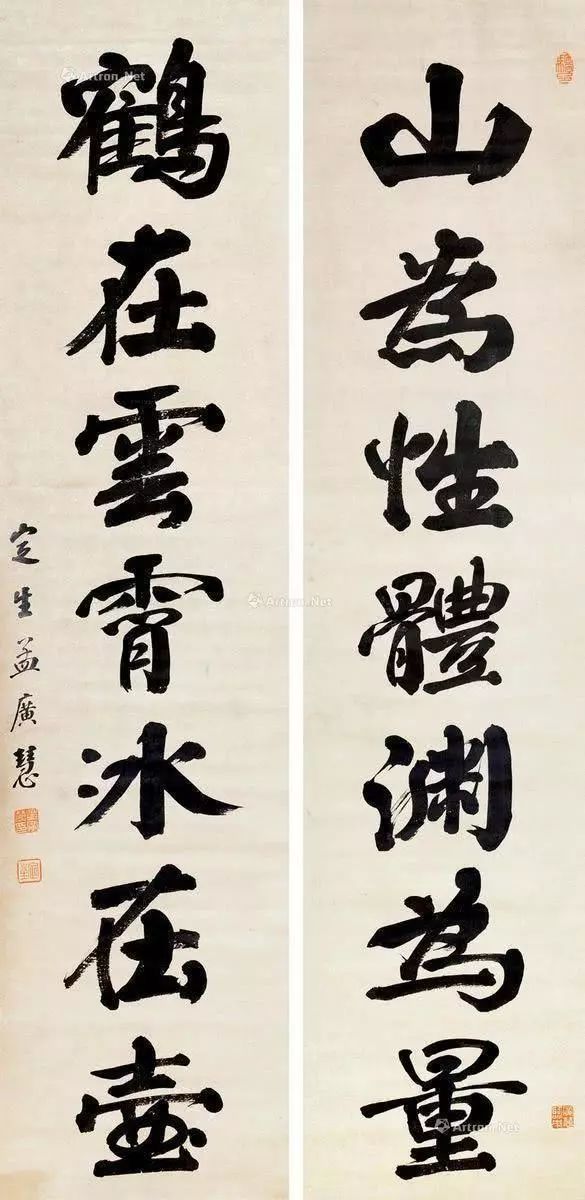 山為性體淵為量
鶴在雲霄冰在壺
定生孟廣慧
Artron.Net
Artron.Net
Artron.Net
Artron.Net